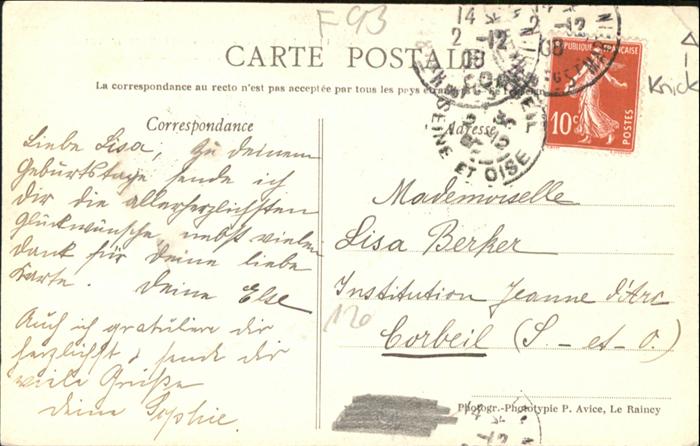 F 93
CARTE POSTALE
La correspondance au recto n'est pas acceptée par tous les pays
Knick
RÉPUBLIQUE FRANÇAISE
10c
POSTES
14
2 - 12
08
14
2 - 12
08
CORBEIL
SEINE ET OISE
Correspondance
Liebe Lisa, Zu deinem
Geburtstage sende ich
dir die allerherzlichsten
Glückwünsche nebst vielen
Dank für deine liebe
Karte. Deine Else
Auch ich gratuliere dir
herzlichst, sende dir
viele Grüße
deine Sophie.
Adresse
Mademoiselle
Lisa Berker
Institution Jeanne d'Arc
Corbeil (S - et - O.)
120
Photogr.-Phototypie P. Avice, Le Raincy